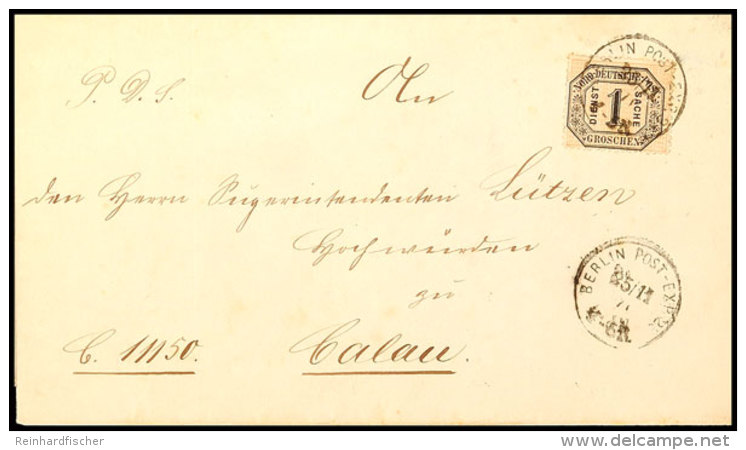 P. D. S.
An
NORD-DEUTSCHE POST
DIENST
1
SACHE
GROSCHEN
BERLIN POST-EXP
den Herrn Superintendenten Lützen
Hochwürden
zu
C. 11150.
Calau.
BERLIN POST-EXP.
25/11
71
Reinhardfischer
www.delcampe.net